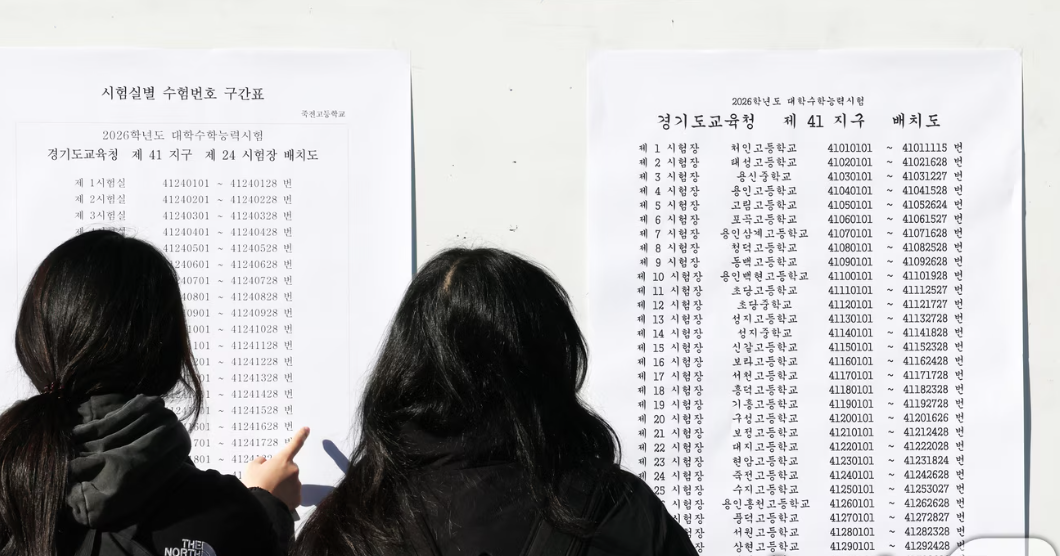 시험실별 수험번호 구간표
죽전고등학교
2026학년도 대학수학능력시험
경기도교육청 제 41 지구 제 24 시험장 배치도
제 1시험실 41240101 ~ 41240128 번
제 2시험실 41240201 ~ 41240228 번
제 3시험실 41240301 ~ 41240328 번
41240401 ~ 41240428 번
41240501 ~ 41240528 번
240601 ~ 41240628 번
240701 ~ 41240728 번
40801 ~ 41240828 번
0901 ~ 41240928 번
1001 ~ 41241028 번
101 ~ 41241128 번
201 ~ 41241228 번
01 ~ 41241328 번
~ 41241428 번
~ 41241528 번
601 ~ 41241628 번
701 ~ 41241728 번
801 ~
41
THE
NORTH
2026학년도 대학수학능력시험
경기도교육청 제 41 지구 배치도
제 1 시험장 처인고등학교 41010101 ~ 41011115 번
제 2 시험장 태성고등학교 41020101 ~ 41021628 번
제 3 시험장 용신중학교 41030101 ~ 41031227 번
제 4 시험장 용인고등학교 41040101 ~ 41041528 번
제 5 시험장 고림고등학교 41050101 ~ 41052624 번
제 6 시험장 포곡고등학교 41060101 ~ 41061527 번
제 7 시험장 용인삼계고등학교 41070101 ~ 41071628 번
제 8 시험장 청덕고등학교 41080101 ~ 41082528 번
제 9 시험장 동백고등학교 41090101 ~ 41092628 번
제 10 시험장 용인백현고등학교 41100101 ~ 41101928 번
제 11 시험장 초당고등학교 41110101 ~ 41112527 번
제 12 시험장 초당중학교 41120101 ~ 41121727 번
제 13 시험장 성지고등학교 41130101 ~ 41132728 번
제 14 시험장 성지중학교 41140101 ~ 41141828 번
제 15 시험장 신갈고등학교 41150101 ~ 41152328 번
제 16 시험장 보라고등학교 41160101 ~ 41162428 번
제 17 시험장 서천고등학교 41170101 ~ 41171728 번
제 18 시험장 흥덕고등학교 41180101 ~ 41182328 번
제 19 시험장 기흥고등학교 41190101 ~ 41192728 번
제 20 시험장 구성고등학교 41200101 ~ 41201626 번
제 21 시험장 보정고등학교 41210101 ~ 41212428 번
제 22 시험장 대지고등학교 41220101 ~ 41222028 번
제 23 시험장 현암고등학교 41230101 ~ 41231824 번
제 24 시험장 죽전고등학교 41240101 ~ 41242628 번
25 시험장 수지고등학교 41250101 ~ 41253027 번
시험장 용인홍천고등학교 41260101 ~ 41262628 번
시험장 풍덕고등학교 41270101 ~ 41272827 번
시험장 서원고등학교 41280101 ~ 41282328 번
장 상현고등학교 41290101 ~ 41292428 번